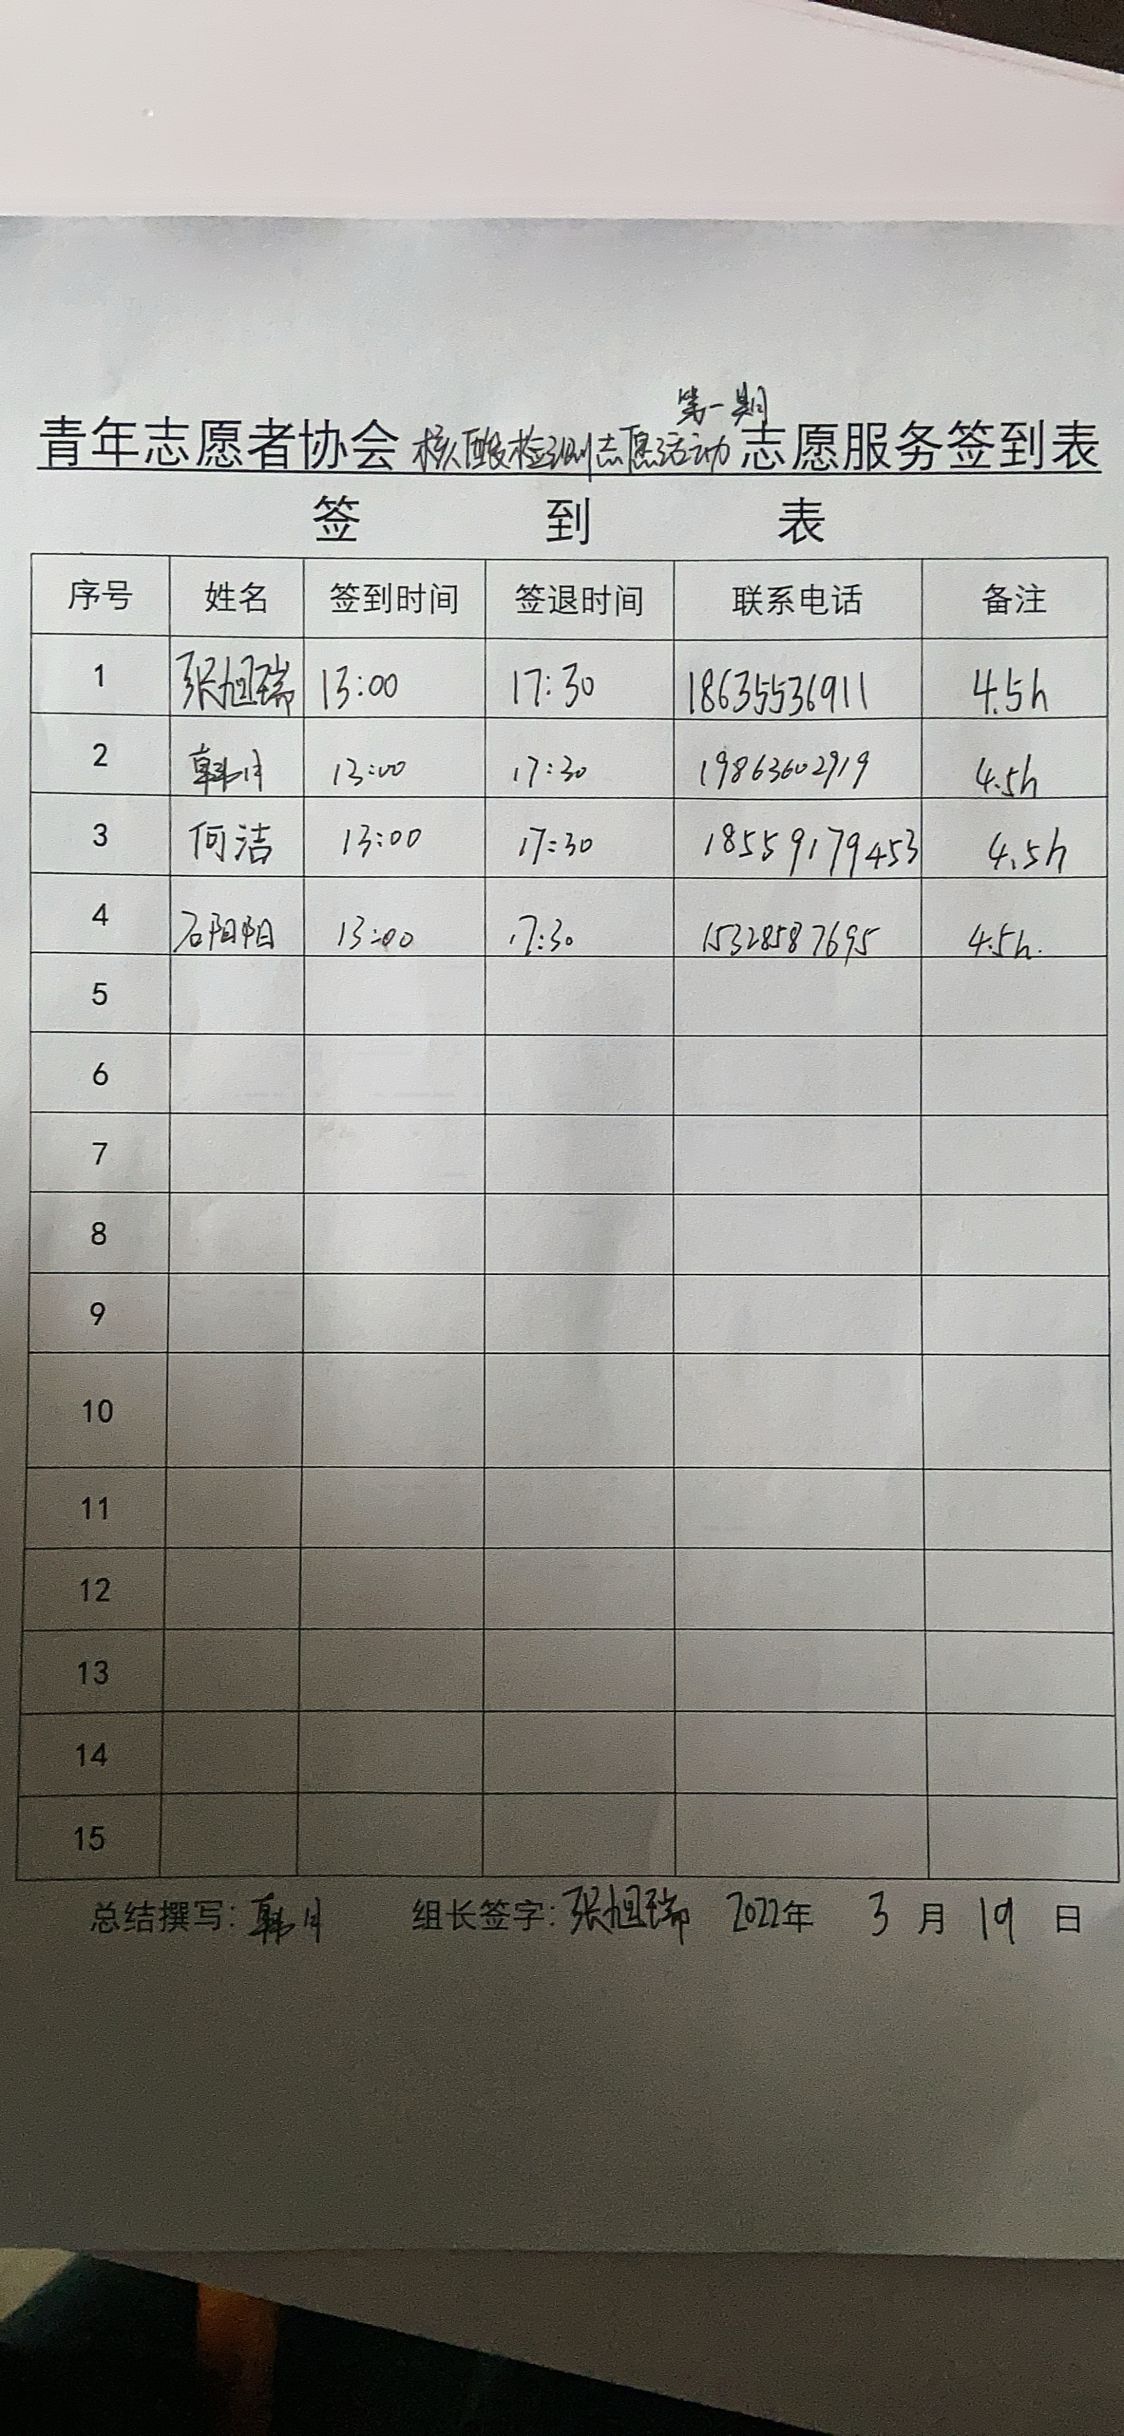 第一期
青年志愿者协会核酸检测志愿活动志愿服务签到表
签 到 表
序号 姓名 签到时间 签退时间 联系电话 备注
1 张旭瑞 13:00 17:30 18635536911 4.5h
2 韩月 13:00 17:30 19863602919 4.5h
3 何洁 13:00 17:30 18559179453 4.5h
4 石阳阳 13:00 17:30 15328587695 4.5h.
5
6
7
8
9
10
11
12
13
14
15
总结撰写：韩月 组长签字：张旭瑞 2022年 3 月 19 日